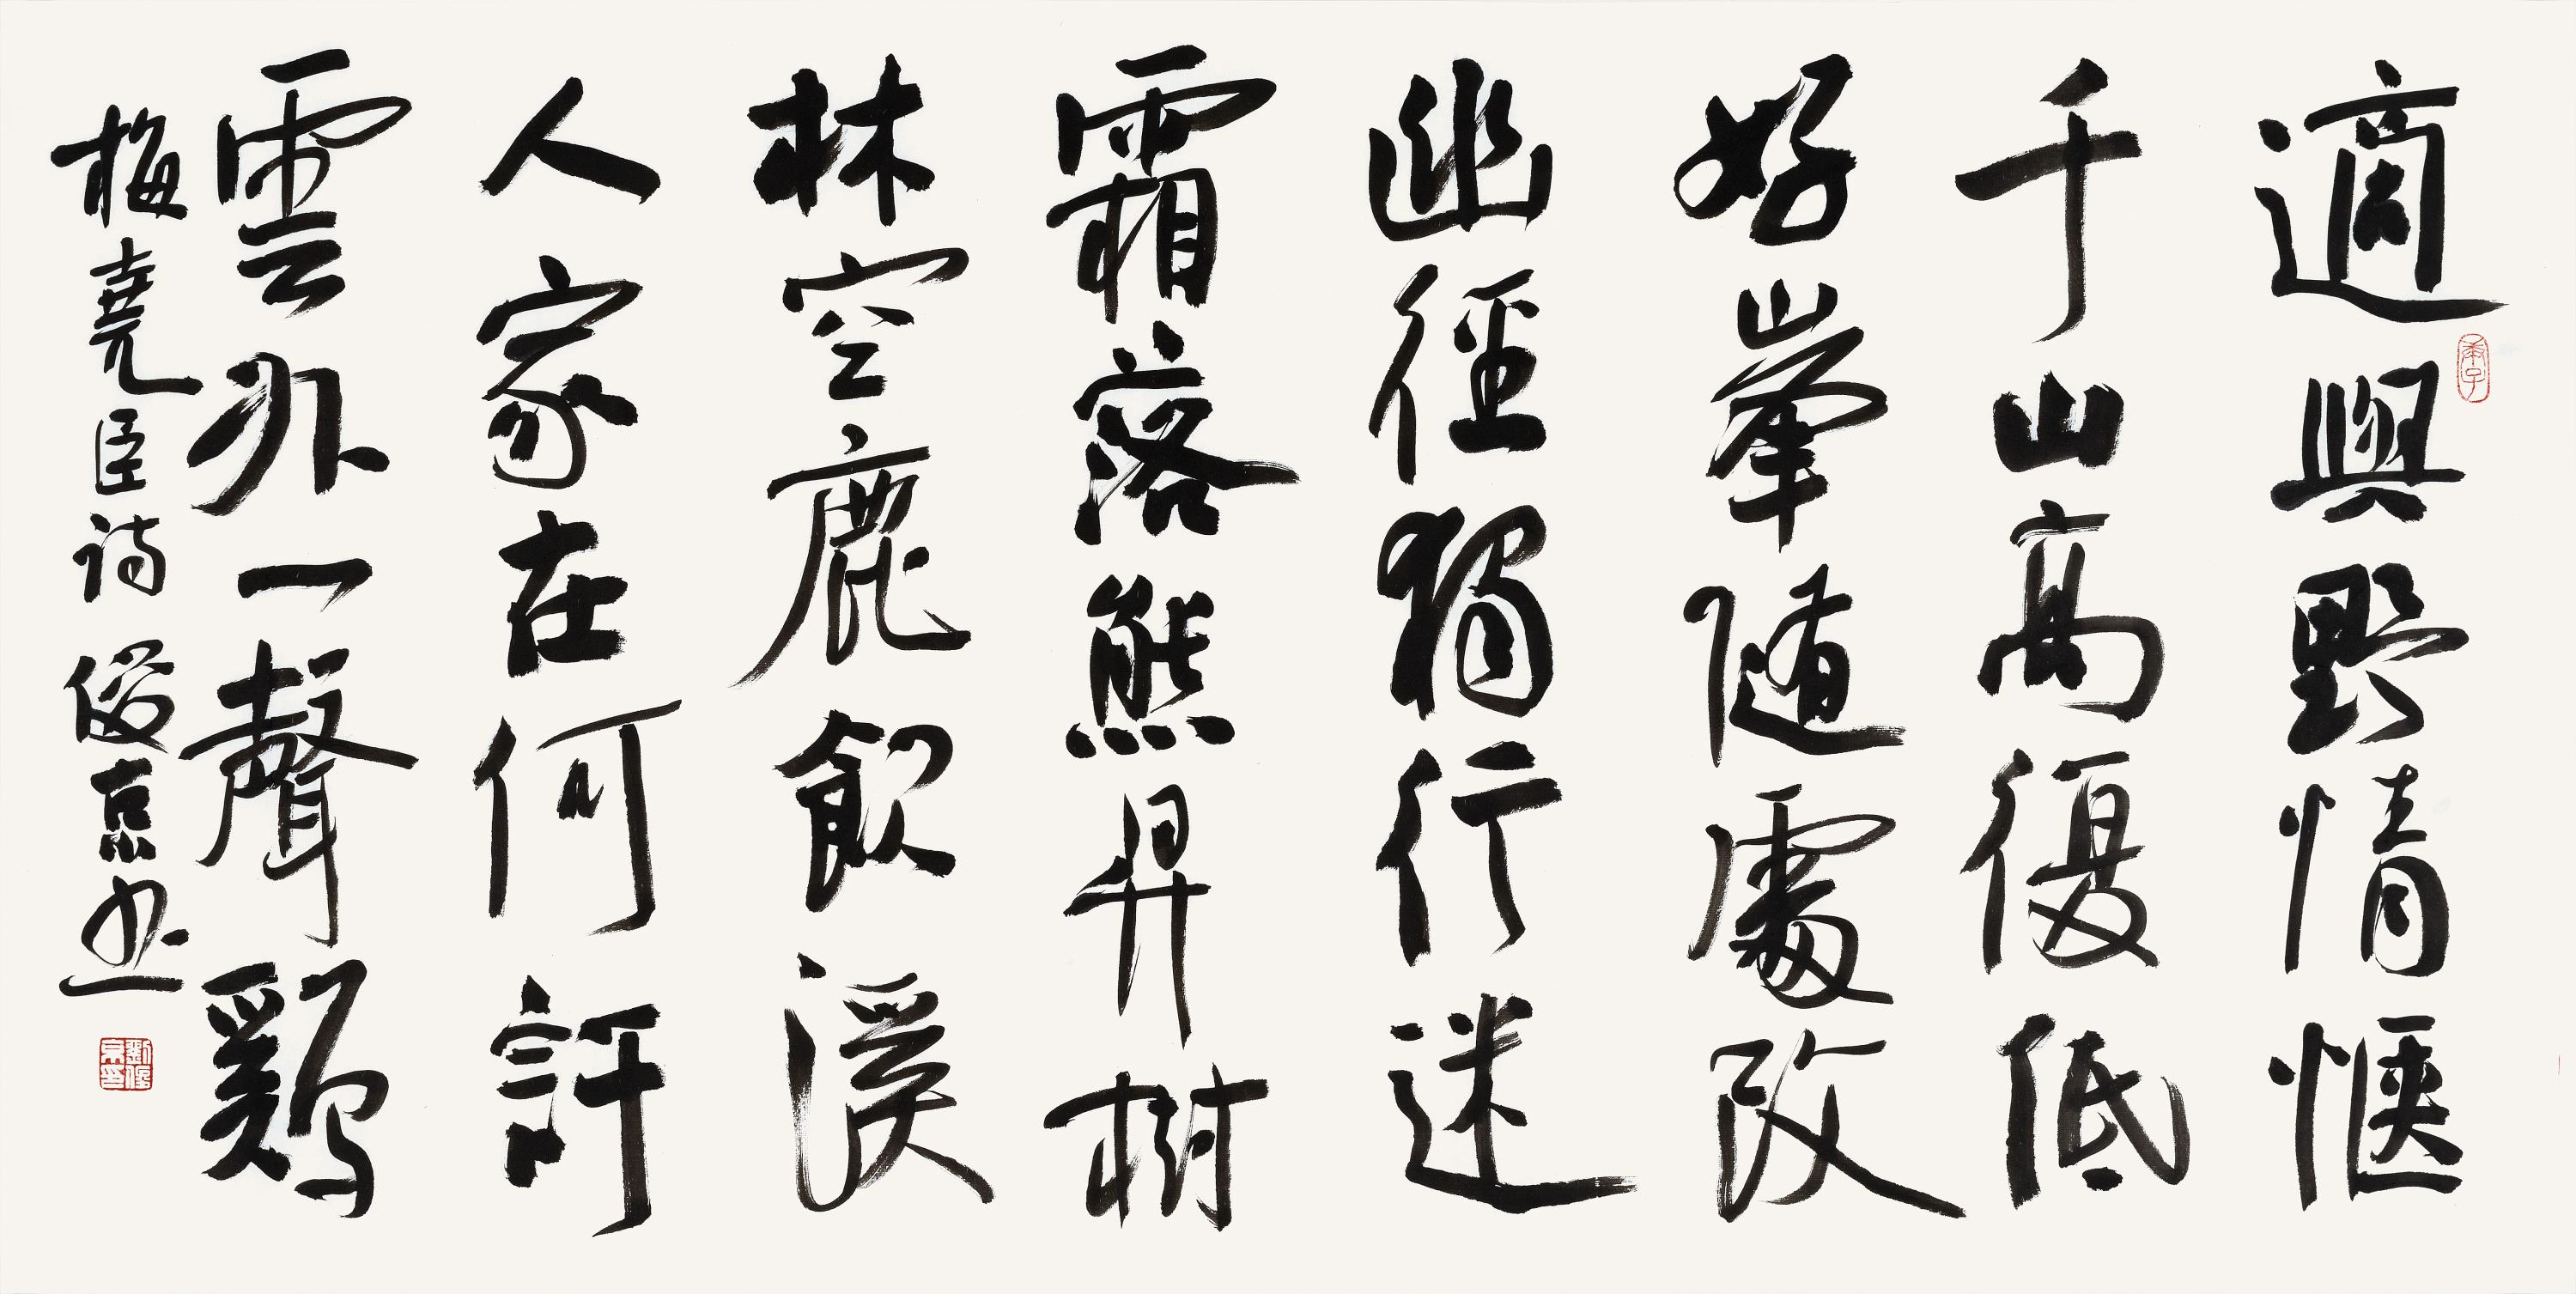 適與野情愜
千山高復低
好峯隨處改
幽徑獨行迷
霜落熊昇樹
林空鹿飲溪
人家在何許
雲外一聲鷄
梅堯臣詩 俊京书
季子
劉俊京印